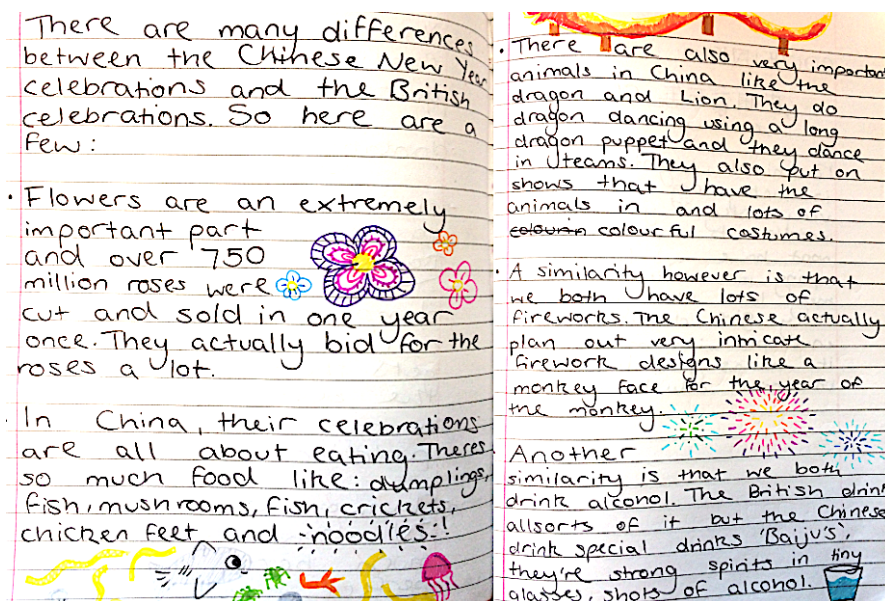 There are many differences
between the Chinese New Year
celebrations and the British
celebrations. So here are a
few:
• Flowers are an extremely
important part
and over 750
million roses were
cut and sold in one year
once. They actually bid for the
roses a lot.
• In China, their celebrations
are all about eating. Theres
so much food like: dumplings,
fish, mushrooms, fish, crickets,
chicken feet and noodles!
• There are also very important
animals in China like the
dragon and Lion. They do
dragon dancing using a long
dragon puppet and they dance
in teams. They also put on
shows that have the
animals in and lots of
colourful costumes.
• A similarity however is that
we both have lots of
fireworks. The Chinese actually
plan out very intricate
firework designs like a
monkey face for the year of
the monkey.
Another
similarity is that we both
drink alcohol. The British drink
allsorts of it but the Chinese
drink special drinks 'Baiju's',
they're strong spirits in tiny
glasses, shots of alcohol.